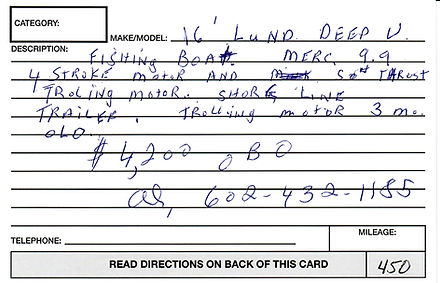 CATEGORY:
MAKE/MODEL: 16' LUND DEEP V.
DESCRIPTION: FISHING BOAT MERC 9.9
4 STROKE MOTOR AND THRUST
TROLING MOTOR. SHORE LINE
TRAILER. TROLLING MOTOR 3 MO.
OLD.
$4,200 OBO
602-432-1185
TELEPHONE: MILEAGE:
READ DIRECTIONS ON BACK OF THIS CARD 450